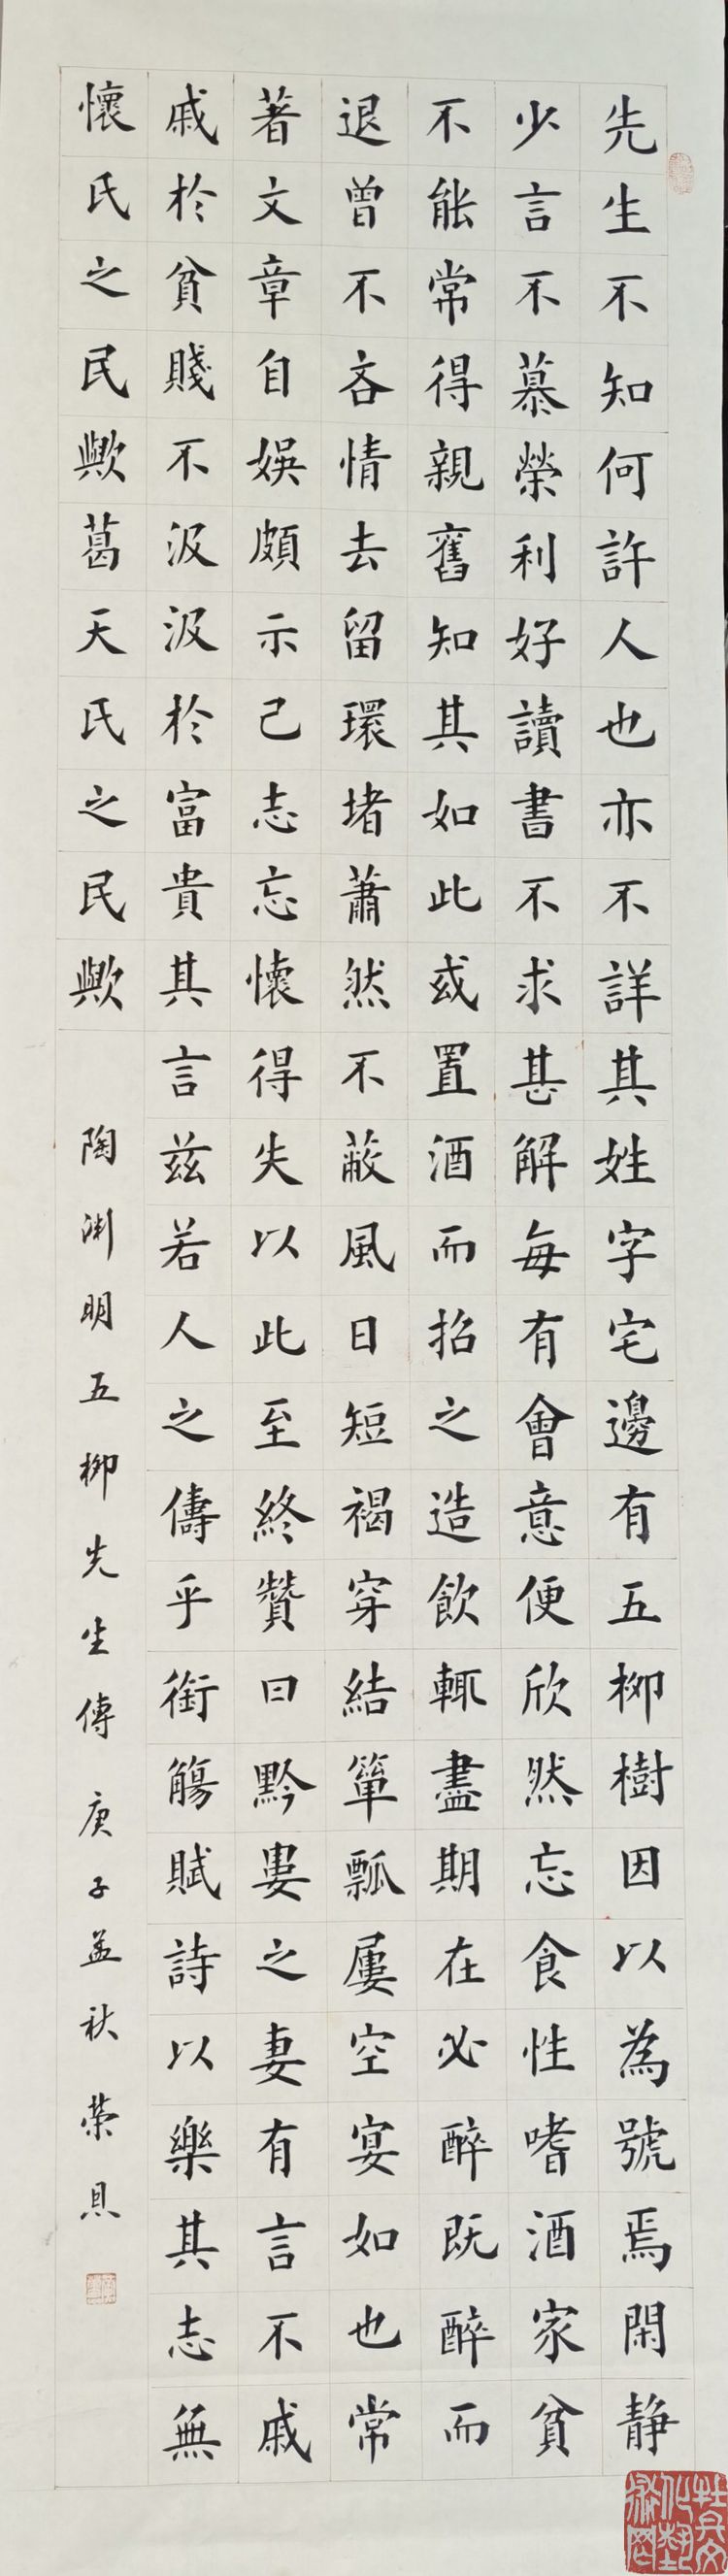 先生不知何許人也亦不詳其姓字宅邊有五柳樹因以為號焉閑静
少言不慕榮利好讀書不求甚解每有會意便欣然忘食性嗜酒家貧
不能常得親舊知其如此或置酒而招之造飲輒盡期在必醉既醉而
退曾不吝情去留環堵蕭然不蔽風日短褐穿結簞瓢屢空宴如也常
著文章自娛頗示己志忘懷得失以此至終贊曰黔婁之妻有言不戚
戚於貧賤不汲汲於富貴其言茲若人之儔乎銜觴賦詩以樂其志無
懷氏之民歟葛天氏之民歟
陶渊明五柳先生傳 庚子孟秋荣